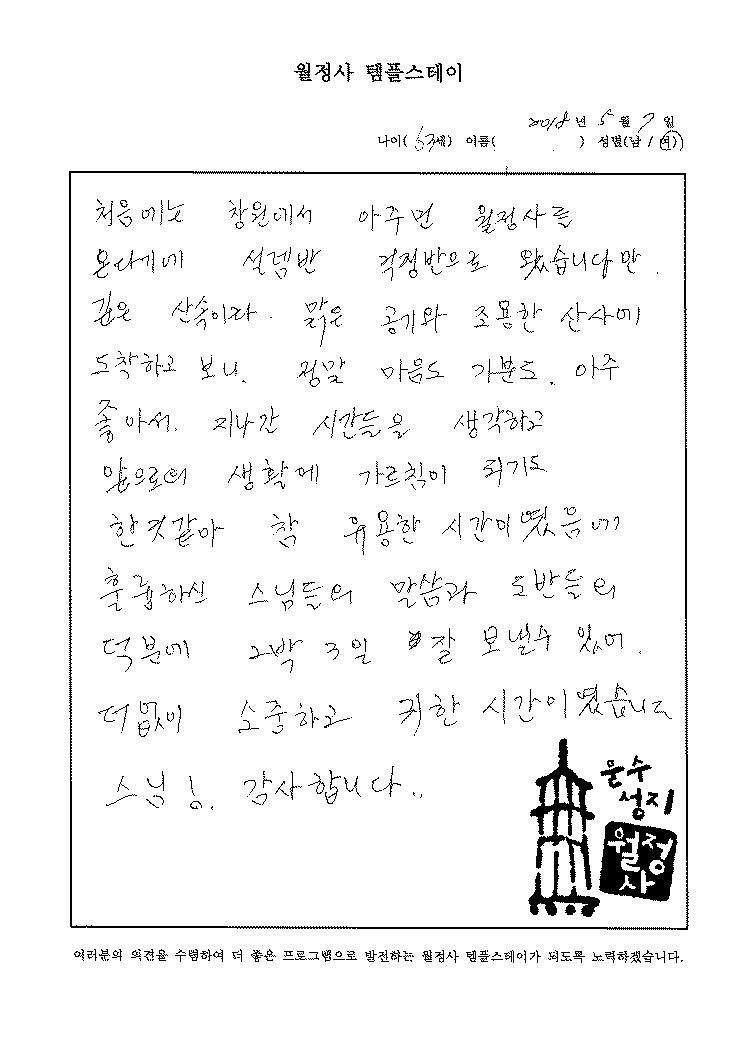 월정사 템플스테이
2018년 5월 7일
나이( 63세) 이름( ) 성별(남 / 여)
처음에는 창원에서 아주먼 월정사를
온다기에 설렘반 걱정반으로 왔습니다만.
깊은 산속이라. 맑은 공기와 조용한 산사에
도착하고 보니. 정말 마음도 기분도. 아주
좋아서. 지나간 시간들을 생각하고
앞으로의 생활에 가르침이 되기도
한것같아 참 유용한 시간이였음에
훌륭하신 스님들의 말씀과 도반들의
덕분에 2박 3일 잘 보낼수 있어.
더없이 소중하고 귀한 시간이였습니다
스님!. 감사합니다..
문수
성지
월정
사
여러분의 의견을 수렴하여 더 좋은 프로그램으로 발전하는 월정사 템플스테이가 되도록 노력하겠습니다.